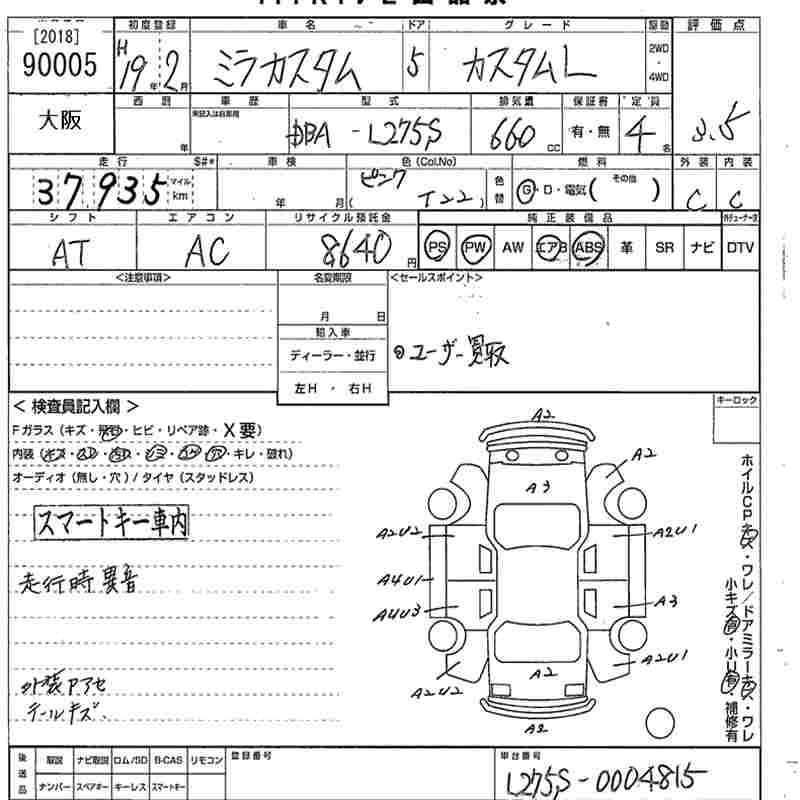 [2018]
90005
大阪
初度登録
H19年2月
車名
ミラカスタム
ドア
5
グレード
カスタムL
駆動
2WD
・
4WD
評価点
3.5
西暦
年
車歴
未記入は自家用
型式
DBA - L275S
排気量
660 cc
保証書
有・無
定員
4名
走行
37,935
マイル
km
S##
車検
年 月
色(Col.No)
ピンク
( T22 )
色替
燃料
G・D・電気( その他 )
外装
C
内装
C
シフト
AT
エアコン
AC
リサイクル預託金
8640円
純正装備品
PS PW AW エアB ABS 革 SR ナビ DTV
<注意事項>
名変期限
月 日
輸入車
ディーラー・並行
左H ・ 右H
<セールスポイント>
◎ユーザー買取
キーロック
< 検査員記入欄 >
Fガラス (キズ・飛石・ヒビ・リペア跡・X要)
・キレ・破れ)
オーディオ (無し・穴) / タイヤ (スタッドレス)
スマートキー車内
走行時異音
外装アセ
テールキズ.
A2
A2
A3
A2U2
A2U1
A4U1
A4U3
A3
A2
A2U1
A2U2
A2
ホイルCPキズ・ワレ/ドアミラーキズ・ワレ
小キズ有・小U有・補修有
後送品
取説 ナビ取説 ロム/SD B-CAS リモコン
ナンバー スペアキー キーレス スマートキー
登録番号
車台番号
L275S-0004815